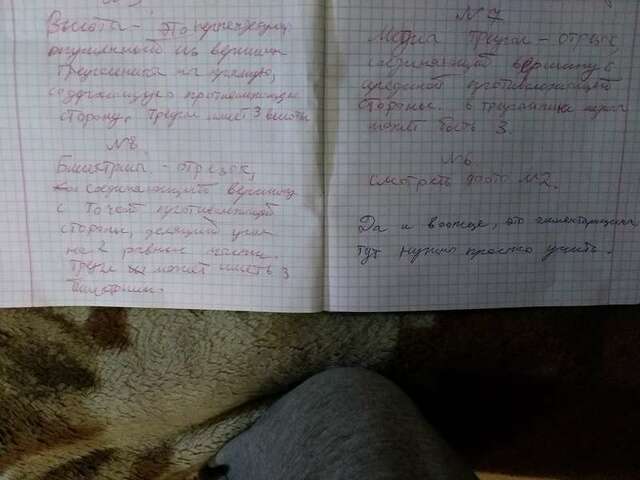 Высота - это перпендикуляр
опущенной из вершины
треугольника на прямую,
содержащую противолежащую
сторону. Треуг имеет 3 высоты
№8.
Биссектриса - отрезок,
соединающий вершину
с точкой противолежащей
стороны, делящий угол
на 2 равные части.
Треуг может иметь 3
№7
треугол - отрезок,
соединяющий вершину с
серединой противолежащей
стороны. в треугольнике
может быть 3.
№6
смотреть фото №2.
Да и вообще, это элементарщина,
тут нужно просто учить.